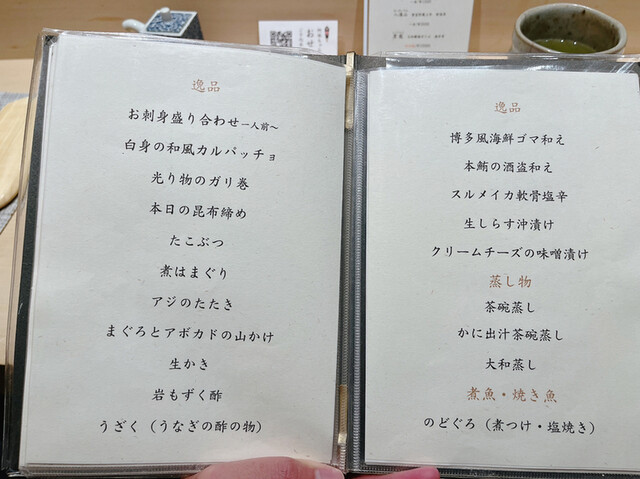 逸品
お刺身盛り合わせ一人前～
白身の和風カルパッチョ
光り物のガリ巻
本日の昆布締め
たこぶつ
煮はまぐり
アジのたたき
まぐろとアボカドの山かけ
生かき
岩もずく酢
うざく（うなぎの酢の物）
逸品
博多風海鮮ゴマ和え
本鮪の酒盗和え
スルメイカ軟骨塩辛
生しらす沖漬け
クリームチーズの味噌漬け
蒸し物
茶碗蒸し
かに出汁茶碗蒸し
大和蒸し
煮魚・焼き魚
のどぐろ（煮つけ・塩焼き）